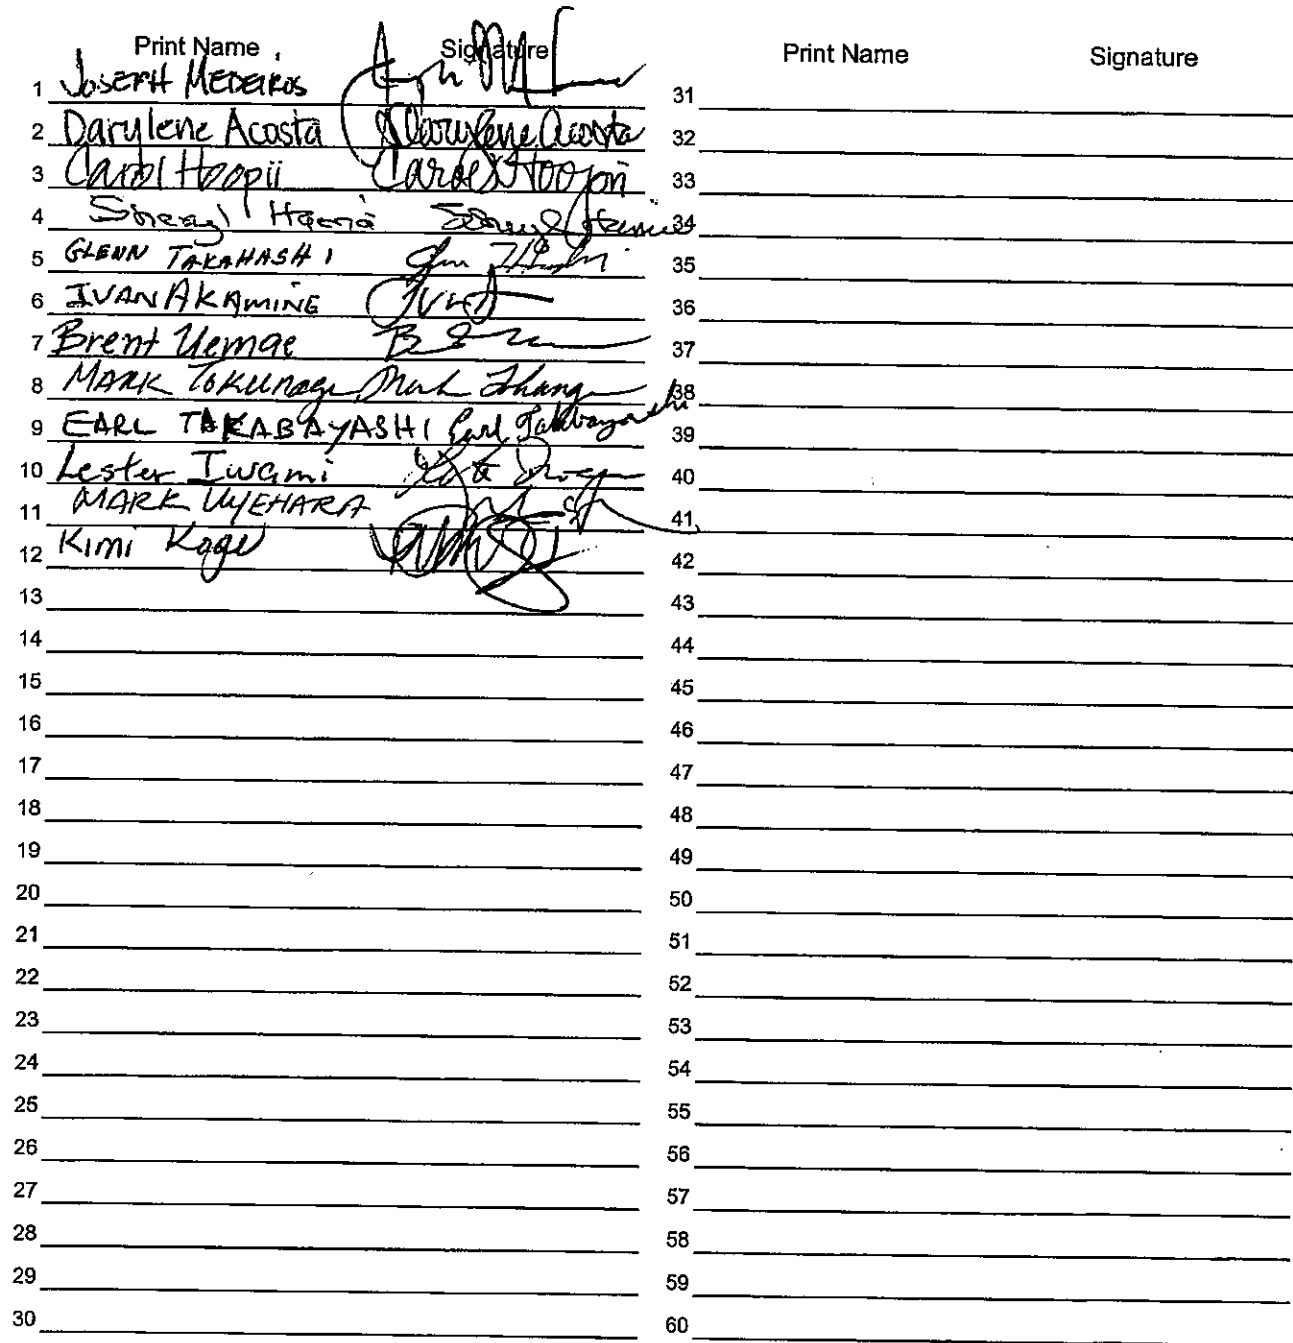 Print Name Signature
1 JOSEPH MEDEIROS
2 Darylene Acosta Darylene Acosta
3 Carol Hoopii Carol Hoopii
4
5 GLENN TAKAHASHI
6 IVAN AKAMINE
7 Brent Uemae
8 MARK TOKUNAGA
9 EARL TAKABAYASHI Earl Takabayashi
10 Lester Iwami
11 MARK UYEHARA
12 Kimi Koge
13
14
15
16
17
18
19
20
21
22
23
24
25
26
27
28
29
30
Print Name Signature
31
32
33
34
35
36
37
38
39
40
41
42
43
44
45
46
47
48
49
50
51
52
53
54
55
56
57
58
59
60